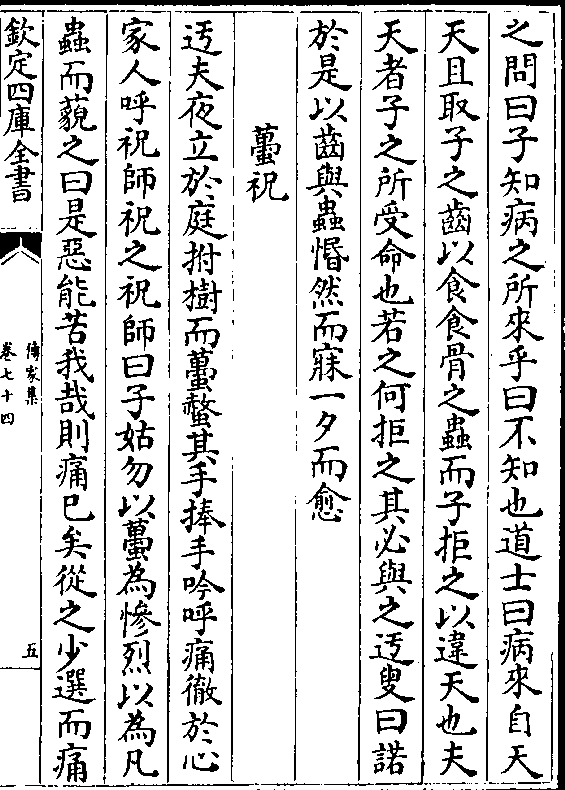 之問曰子知病之所來乎曰不知也道士曰病來自天
天且取子之齒以食食骨之蟲而子拒之以違天也夫
天者子之所受命也若之何拒之其必與之迃叟曰諾
於是以齒與蟲惛然而寐一夕而愈
蠆祝
迃夫夜立於庭拊樹而蠆螫其手捧手吟呼痛徹於心
家人呼祝師祝之祝師曰子姑勿以蠆為慘烈以為凡
蟲而藐之曰是惡能苦我哉則痛已矣從之少選而痛
欽定四庫全書
傳家集
卷七十四
五